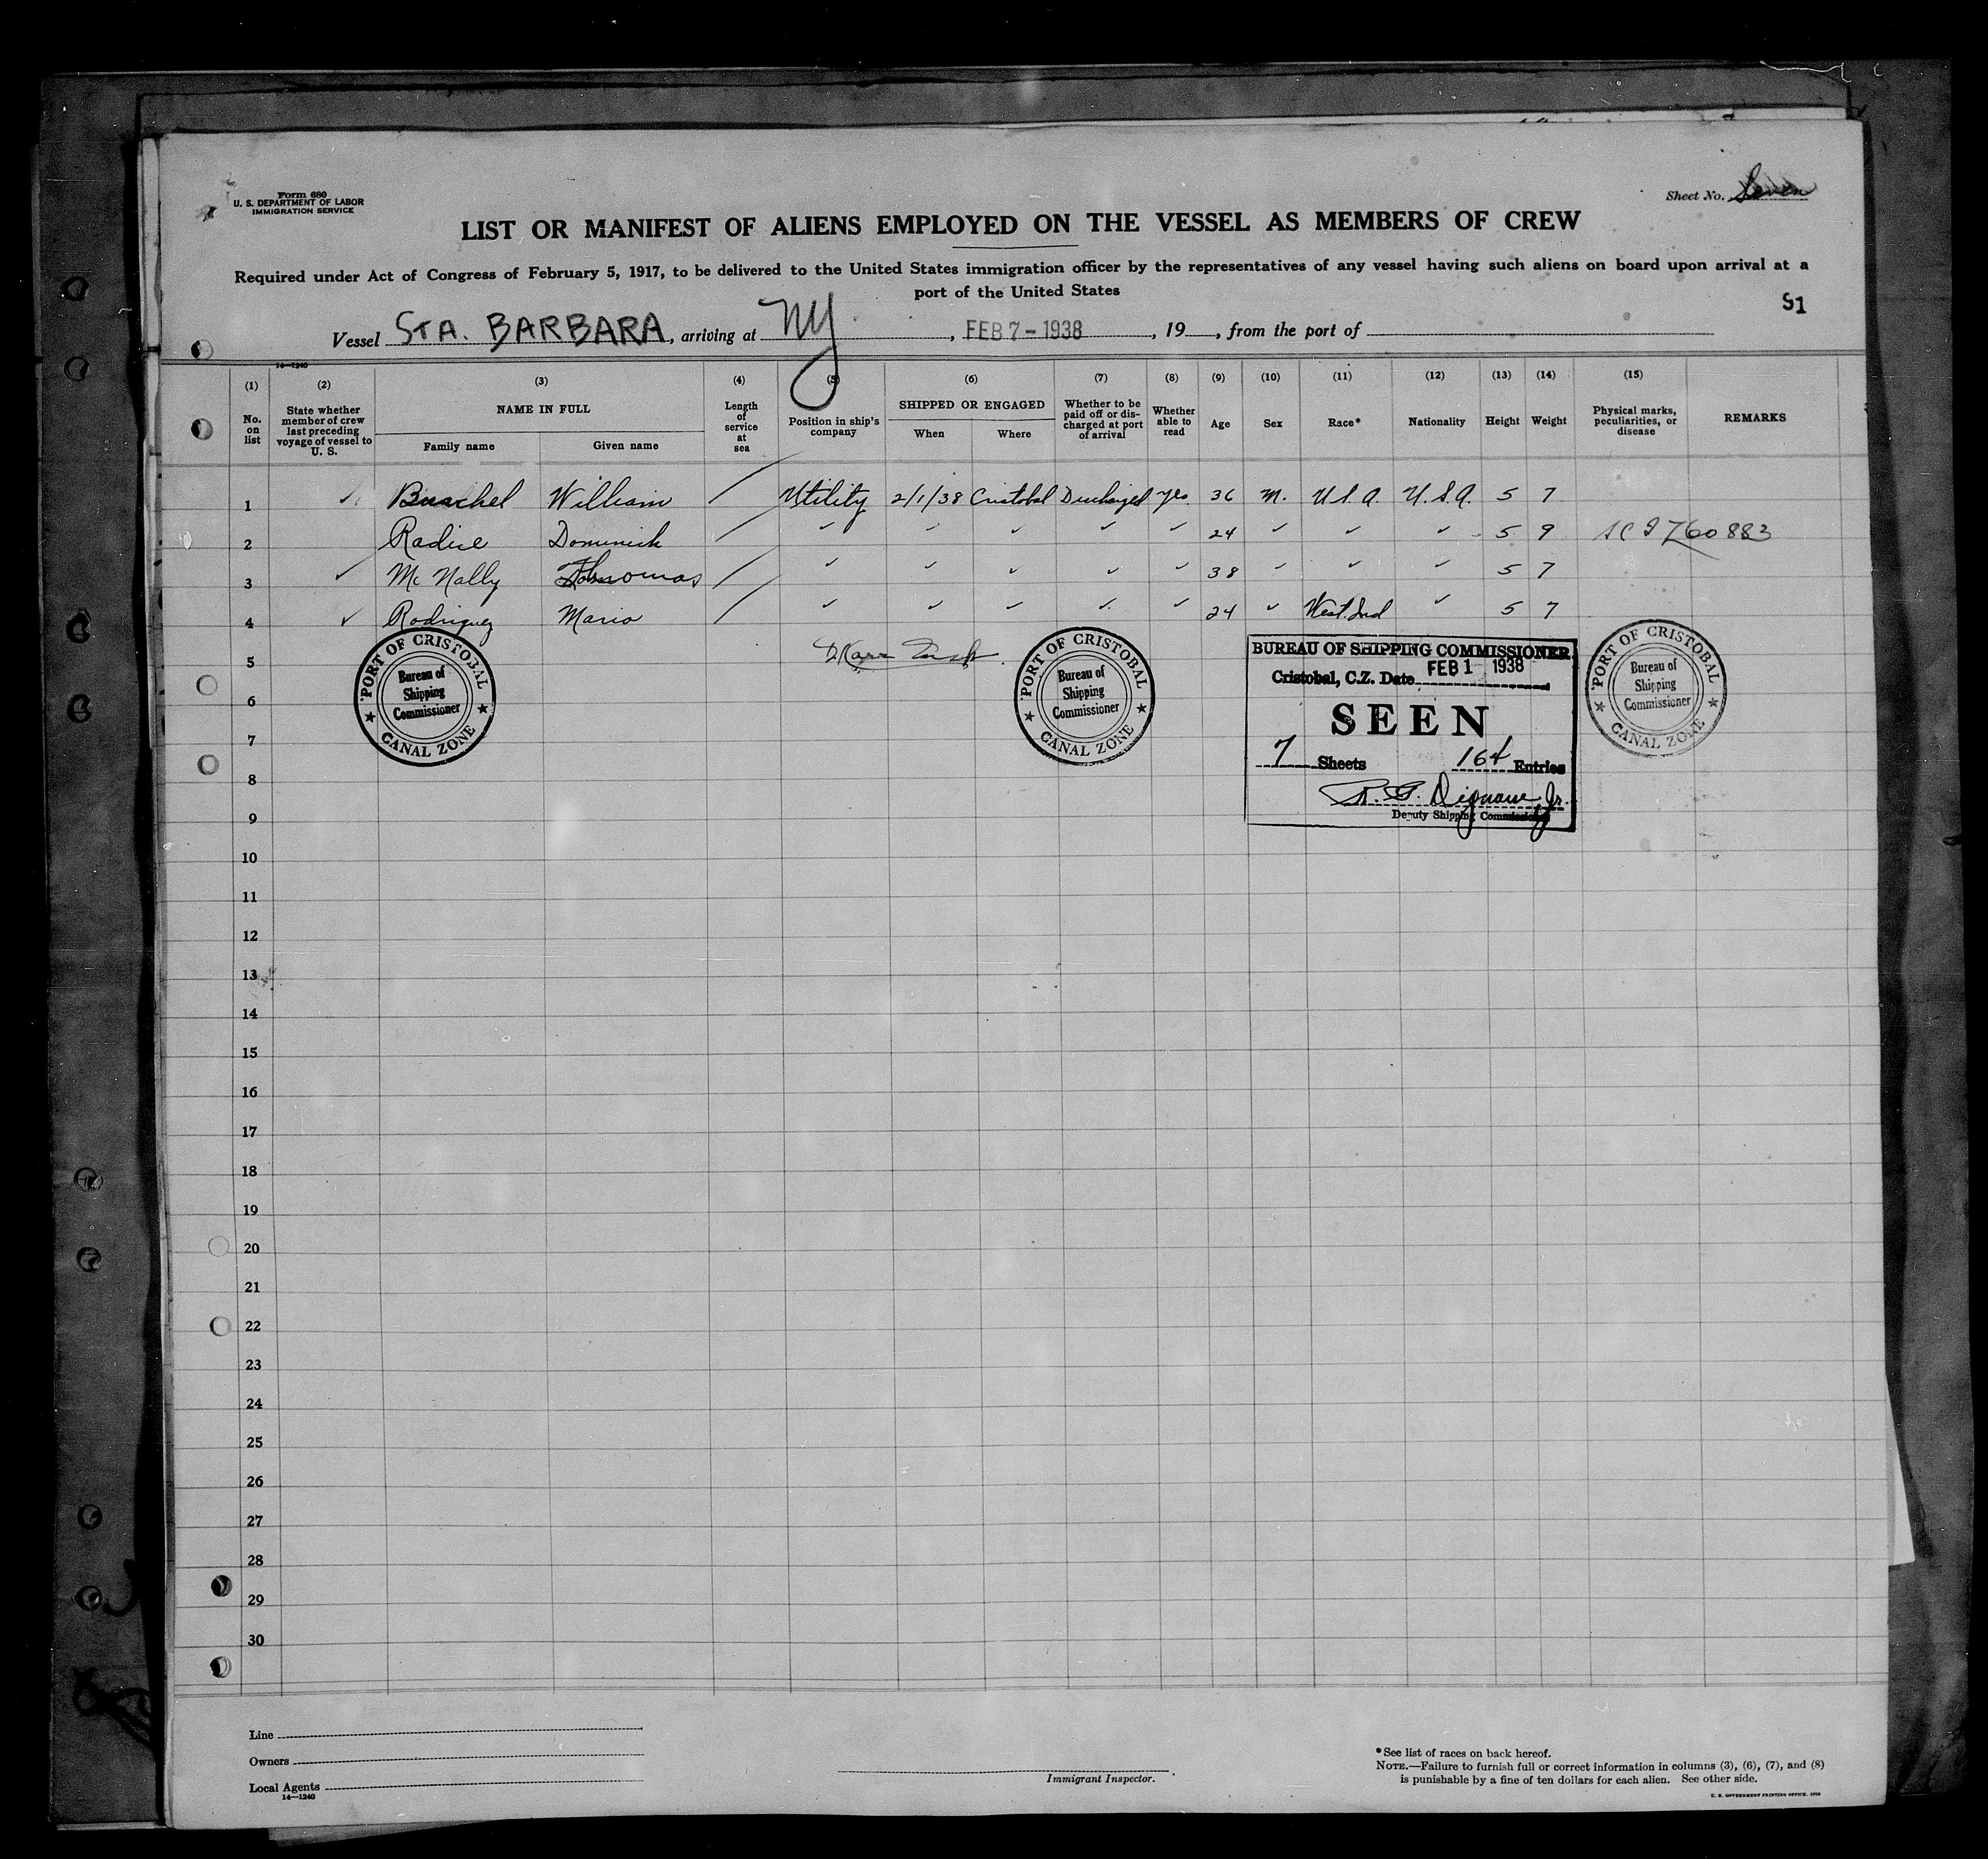 Form 680
U. S. DEPARTMENT OF LABOR
IMMIGRATION SERVICE
Sheet No. Seven
LIST OR MANIFEST OF ALIENS EMPLOYED ON THE VESSEL AS MEMBERS OF CREW
Required under Act of Congress of February 5, 1917, to be delivered to the United States immigration officer by the representatives of any vessel having such aliens on board upon arrival at a
port of the United States
51
Vessel STA. BARBARA, arriving at NY, FEB 7-1938, 19, from the port of
14—1240
(1) (2) (3) (4) (5) (6) (7) (8) (9) (10) (11) (12) (13) (14) (15)
No. on list
State whether member of crew last preceding voyage of vessel to U. S.
NAME IN FULL
Family name Given name
Length of service at sea
Position in ship's company
SHIPPED OR ENGAGED
When Where
Whether to be paid off or discharged at port of arrival
Whether able to read
Age Sex Race* Nationality Height Weight
Physical marks, peculiarities, or disease
REMARKS
1 ✓ William / Utility 2/1/38 Cristobal Discharged yes 36 M. U.S.A. U.S.A. 5 7
2 Radice Dominick / ✓ ✓ ✓ ✓ ✓ 24 ✓ ✓ ✓ 5 9 60883
3 ✓ Mc Nally Thomas / ✓ ✓ ✓ ✓ ✓ 38 ✓ ✓ ✓ 5 7
4 ✓ Rodriguez Mario / ✓ ✓ ✓ ✓ ✓ 24 ✓ West. Ind ✓ 5 7
5
6
7
8
9
10
11
12
13
14
15
16
17
18
19
20
21
22
23
24
25
26
27
28
29
30
PORT OF CRISTOBAL
Bureau of
Shipping
Commissioner
CANAL ZONE
PORT OF CRISTOBAL
Bureau of
Shipping
Commissioner
CANAL ZONE
BUREAU OF SHIPPING COMMISSIONER
Cristobal, C.Z. Date FEB 1 1938
SEEN
7 Sheets 164 Entries
Jr.
Deputy Shipping Commissioner
PORT OF CRISTOBAL
Bureau of
Shipping
Commissioner
CANAL ZONE
Line
Owners
Local Agents
14—1240
Immigrant Inspector.
*See list of races on back hereof.
NOTE.—Failure to furnish full or correct information in columns (3), (6), (7), and (8)
is punishable by a fine of ten dollars for each alien. See other side.